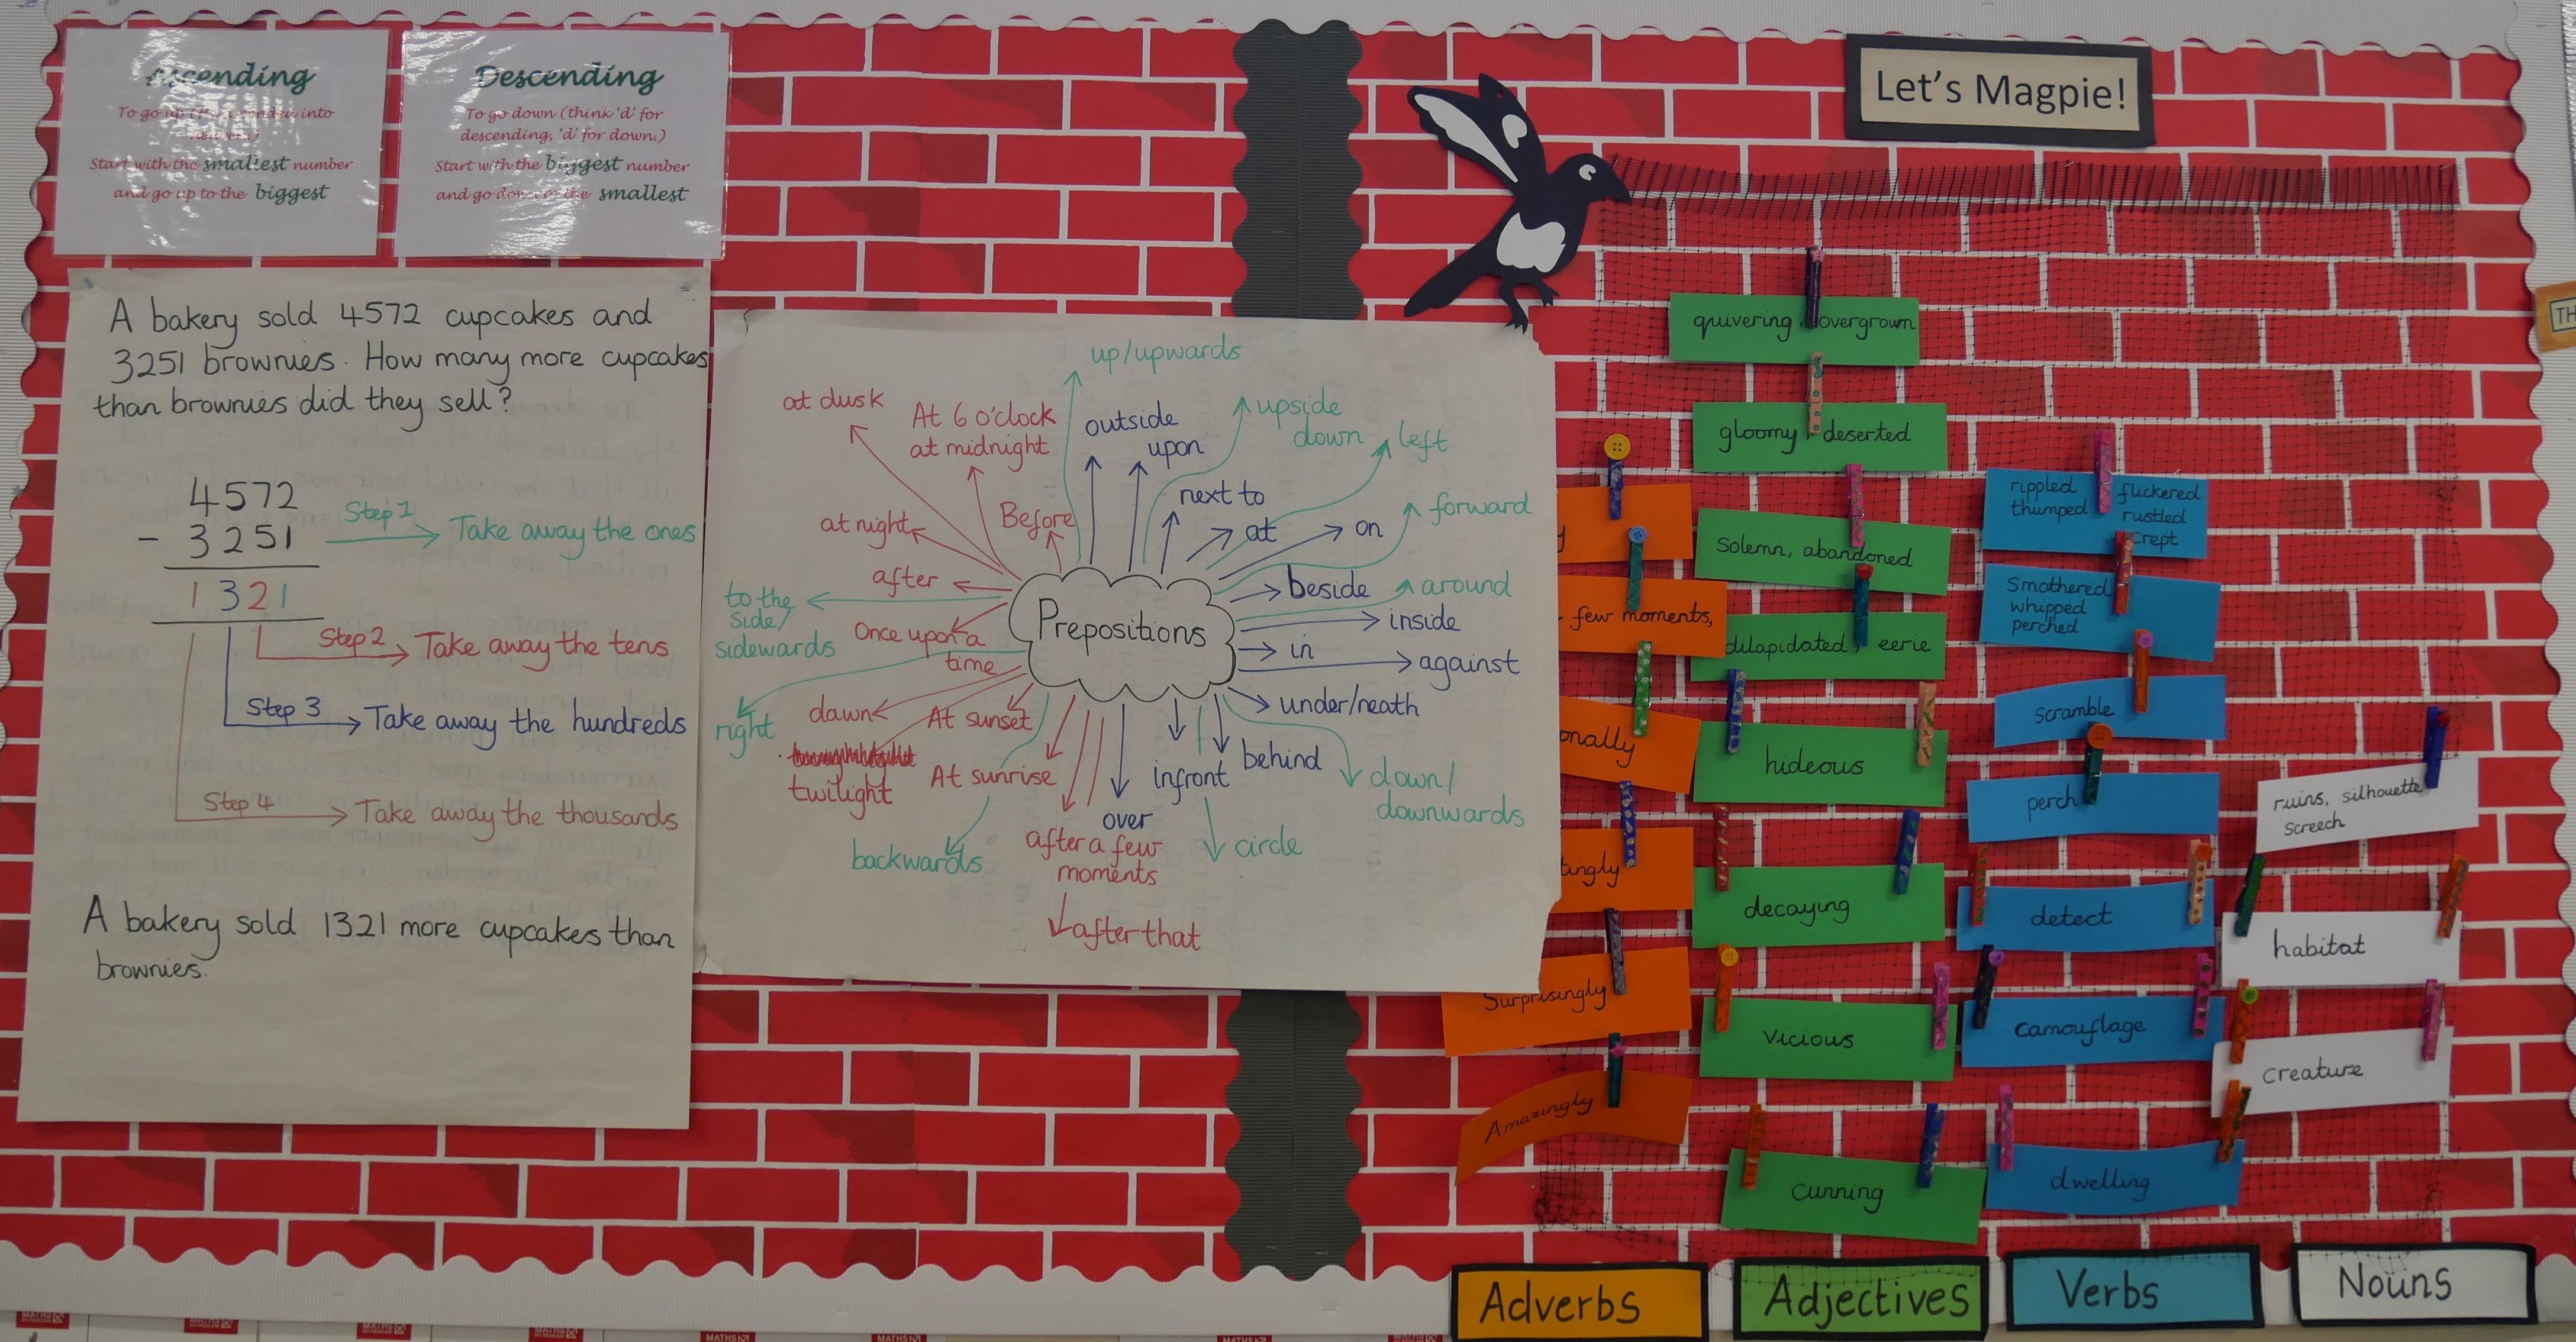 Ascending
To go up
into
Start with the smallest number
and go up to the biggest
Descending
To go down (think 'd' for
descending, 'd' for down.)
Start with the biggest number
and go down to the smallest
A bakery sold 4572 cupcakes and
3251 brownies. How many more cupcakes
than brownies did they sell?
4572
- 3251
1321
Step 1 Take away the ones
Step 2 Take away the tens
Step 3 Take away the hundreds
Step 4 Take away the thousands
A bakery sold 1321 more cupcakes than
brownies.
Prepositions
at dusk
At 6 o'clock
at midnight
up/upwards
outside
upon
upside
down
left
next to
at
on
forward
at night
Before
after
beside
around
to the
side/
sidewards
Once upon a
time
inside
in
against
under/neath
right
dawn
At sunset
twilight
At sunrise
backwards
over
after a few
moments
after that
infront
behind
circle
down/
downwards
Let's Magpie!
quivering, overgrown
gloomy, deserted
Solemn, abandoned
dilapidated, eerie
hideous
decaying
vicious
cunning
y
few moments,
onally
tingly
Surprisingly
Amazingly
rippled
thumped
flickered
rustled
crept
Smothered
whipped
perched
scramble
perch
detect
camouflage
dwelling
ruins, silhouette
screech
habitat
creature
Adverbs
Adjectives
Verbs
Nouns
TH
MATHS
MATHS
MATHS
MATHS
MATHS